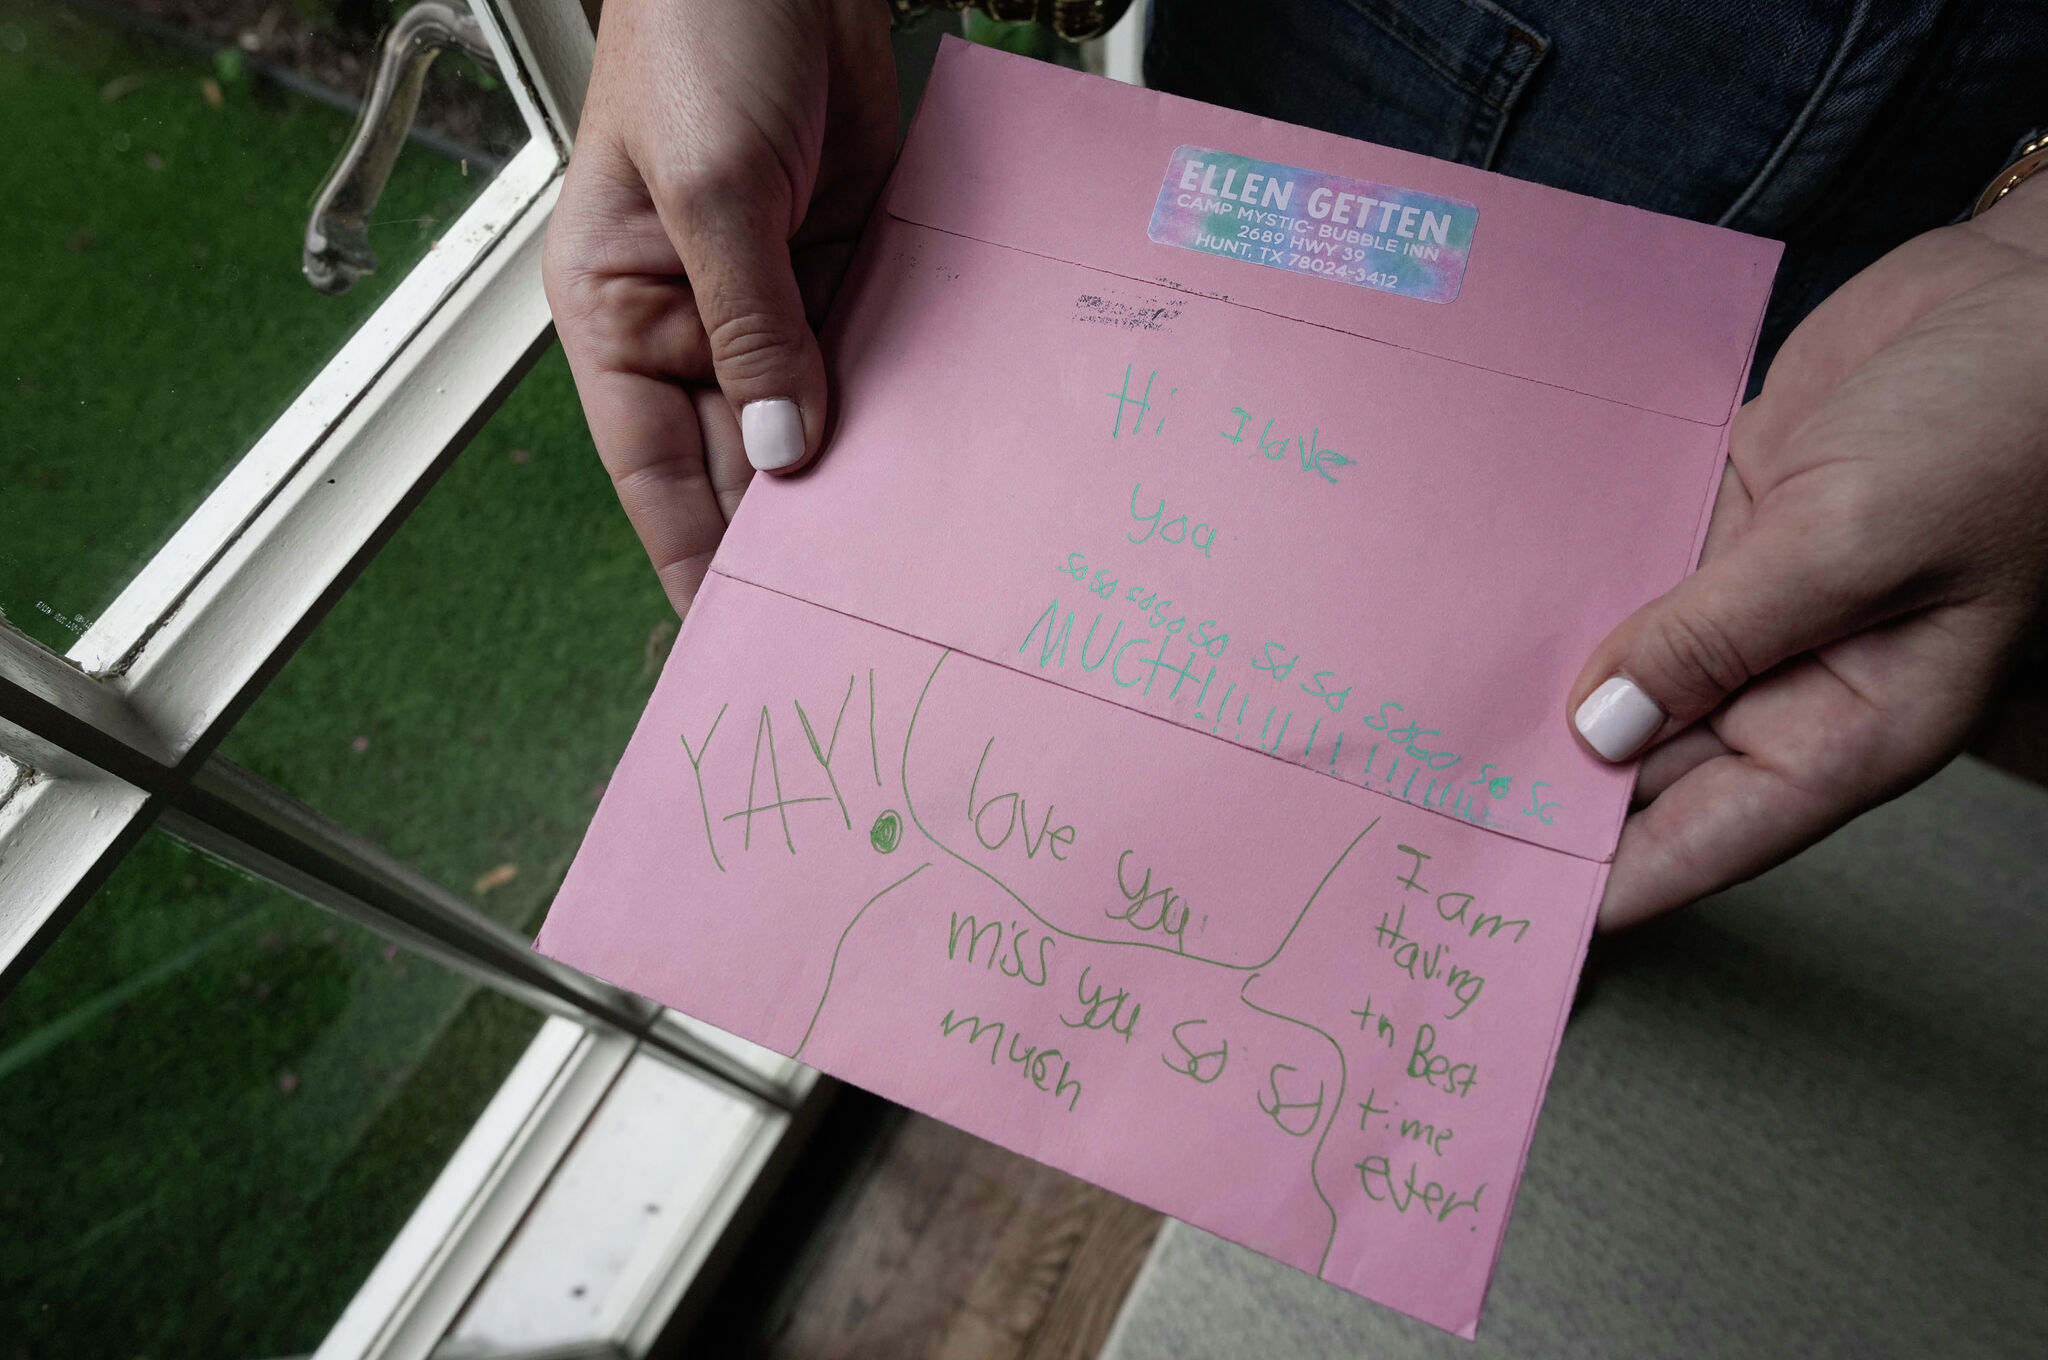 ELLEN GETTEN
CAMP MYSTIC- BUBBLE INN
2689 HWY 39
HUNT, TX 78024-3412
Hi I love
you
so so so so so so so so so so so so so
MUCH!!!!!!!!!!!!!!!!!!
YAY!
love you
miss you so so
much
I am
Having
th Best
time
ever!